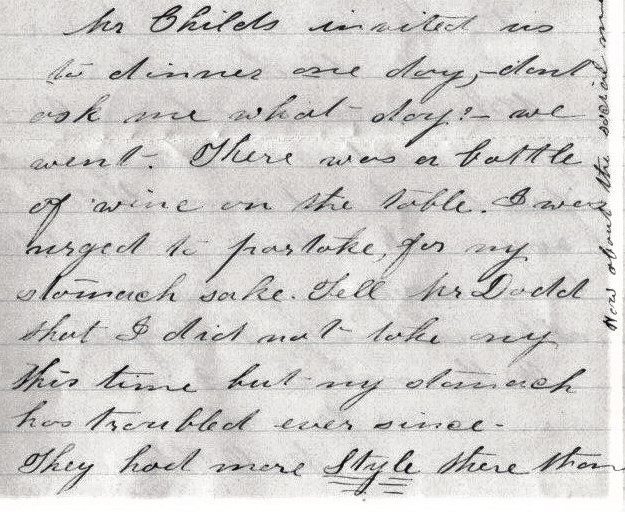 Mr Childs invited us
to dinner one day,- dont
ask me what day!- we
went. There was a bottle
of wine on the table. I was
urged to partake, for my
stomach sake. Tell Mr Dodd
that I did not take any
this time but my stomach
has troubled ever since.
They had more Style there than
How about the social